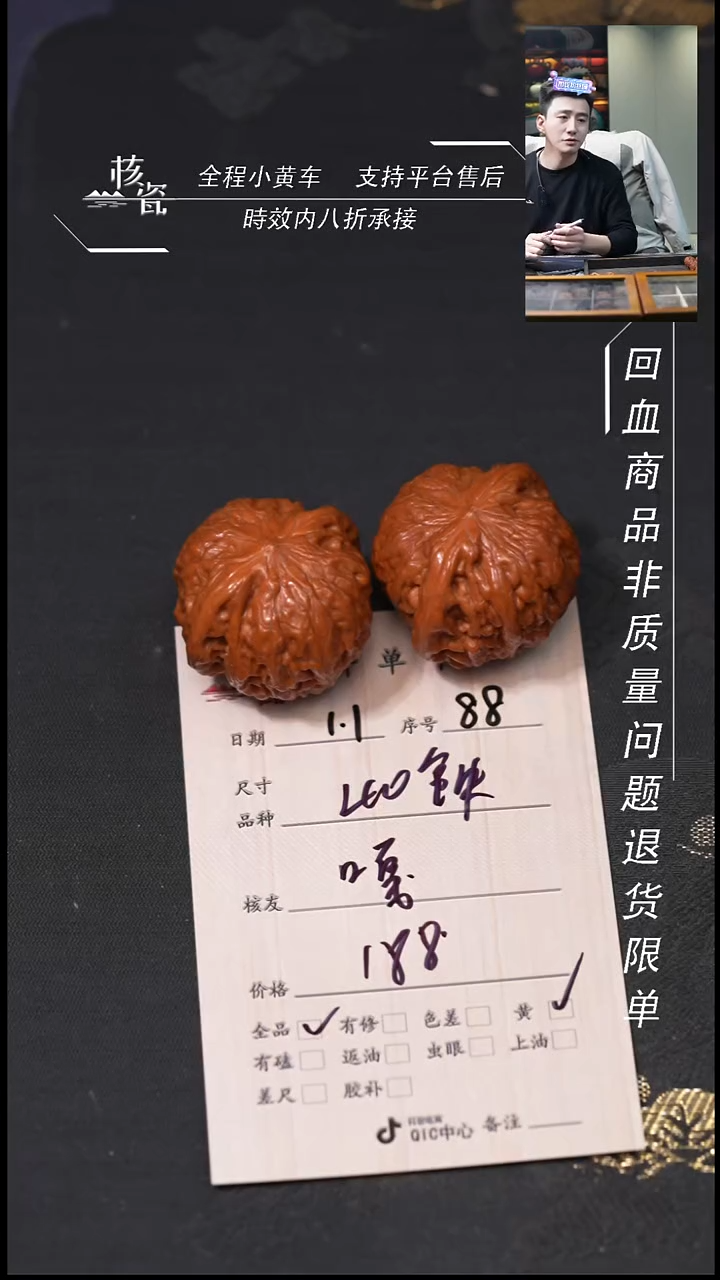 核瓷
全程小黄车 支持平台售后
時效内八折承接
回血商品非质量问题退货限单
单
日期 1.1 序号 88
尺寸
品种
核友 嘎
价格 188
全品 ✓ 有修 色差 黄 ✓
有磕 返油 虫眼 上油
差尺 胶补
抖音电商
QIC中心 备注